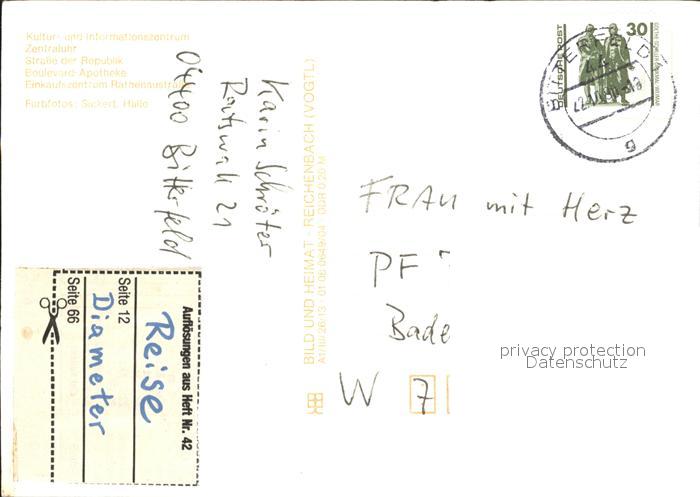 Kultur- und Informationszentrum
Zentraluhr
Straße der Republik
Boulevard-Apotheke
Einkaufszentrum Rathenaustraße
Farbfotos: Sickert, Halle
Karin Schröter
Ratswall 21
04400 Bitterfeld
BILD UND HEIMAT · REICHENBACH (VOGTL)
A1/III/26/13 01 08 0649/04 DDR 0,20 M
DEUTSCHE POST
30
BITTERFELD
44
g
FRAU mit Herz
PF
Bade
W 7
privacy protection
Datenschutz
Auflösungen aus Heft Nr. 42
Reise
Seite 12
Diameter
Seite 66